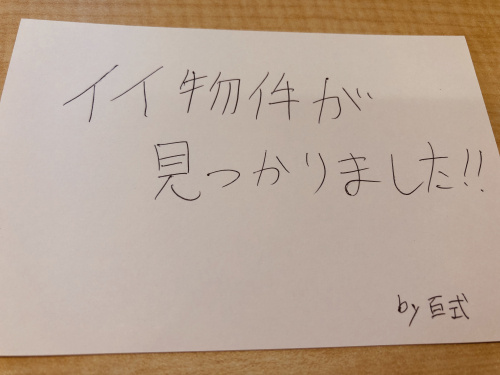 イイ物件が
見つかりました!!
by 百式